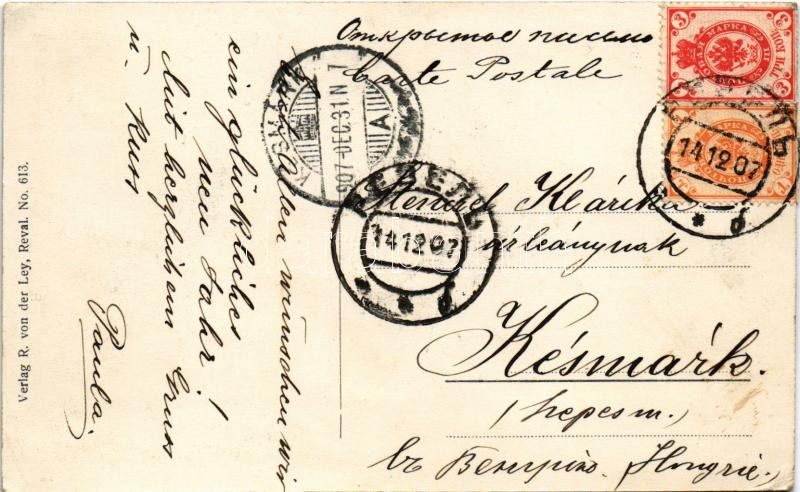 Открытое письмо
Carte Postale
Klárika
úrleánynak
Késmárk.
(Szepes m.)
въ Венгрію. Hongrie.
Allen wünschen wir
ein glückliches
neu Jahr!
Mit herzlichem Gruss
u. Kuss
Paula.
Verlag R. von der Ley, Reval. No. 613.
РЕВЕЛЬ
14.12.07
РЕВЕЛЬ
14.12.07
KÉSMÁRK
907 DEC. 31. N 7
A
МАРКА
3
3
МАРКА
1